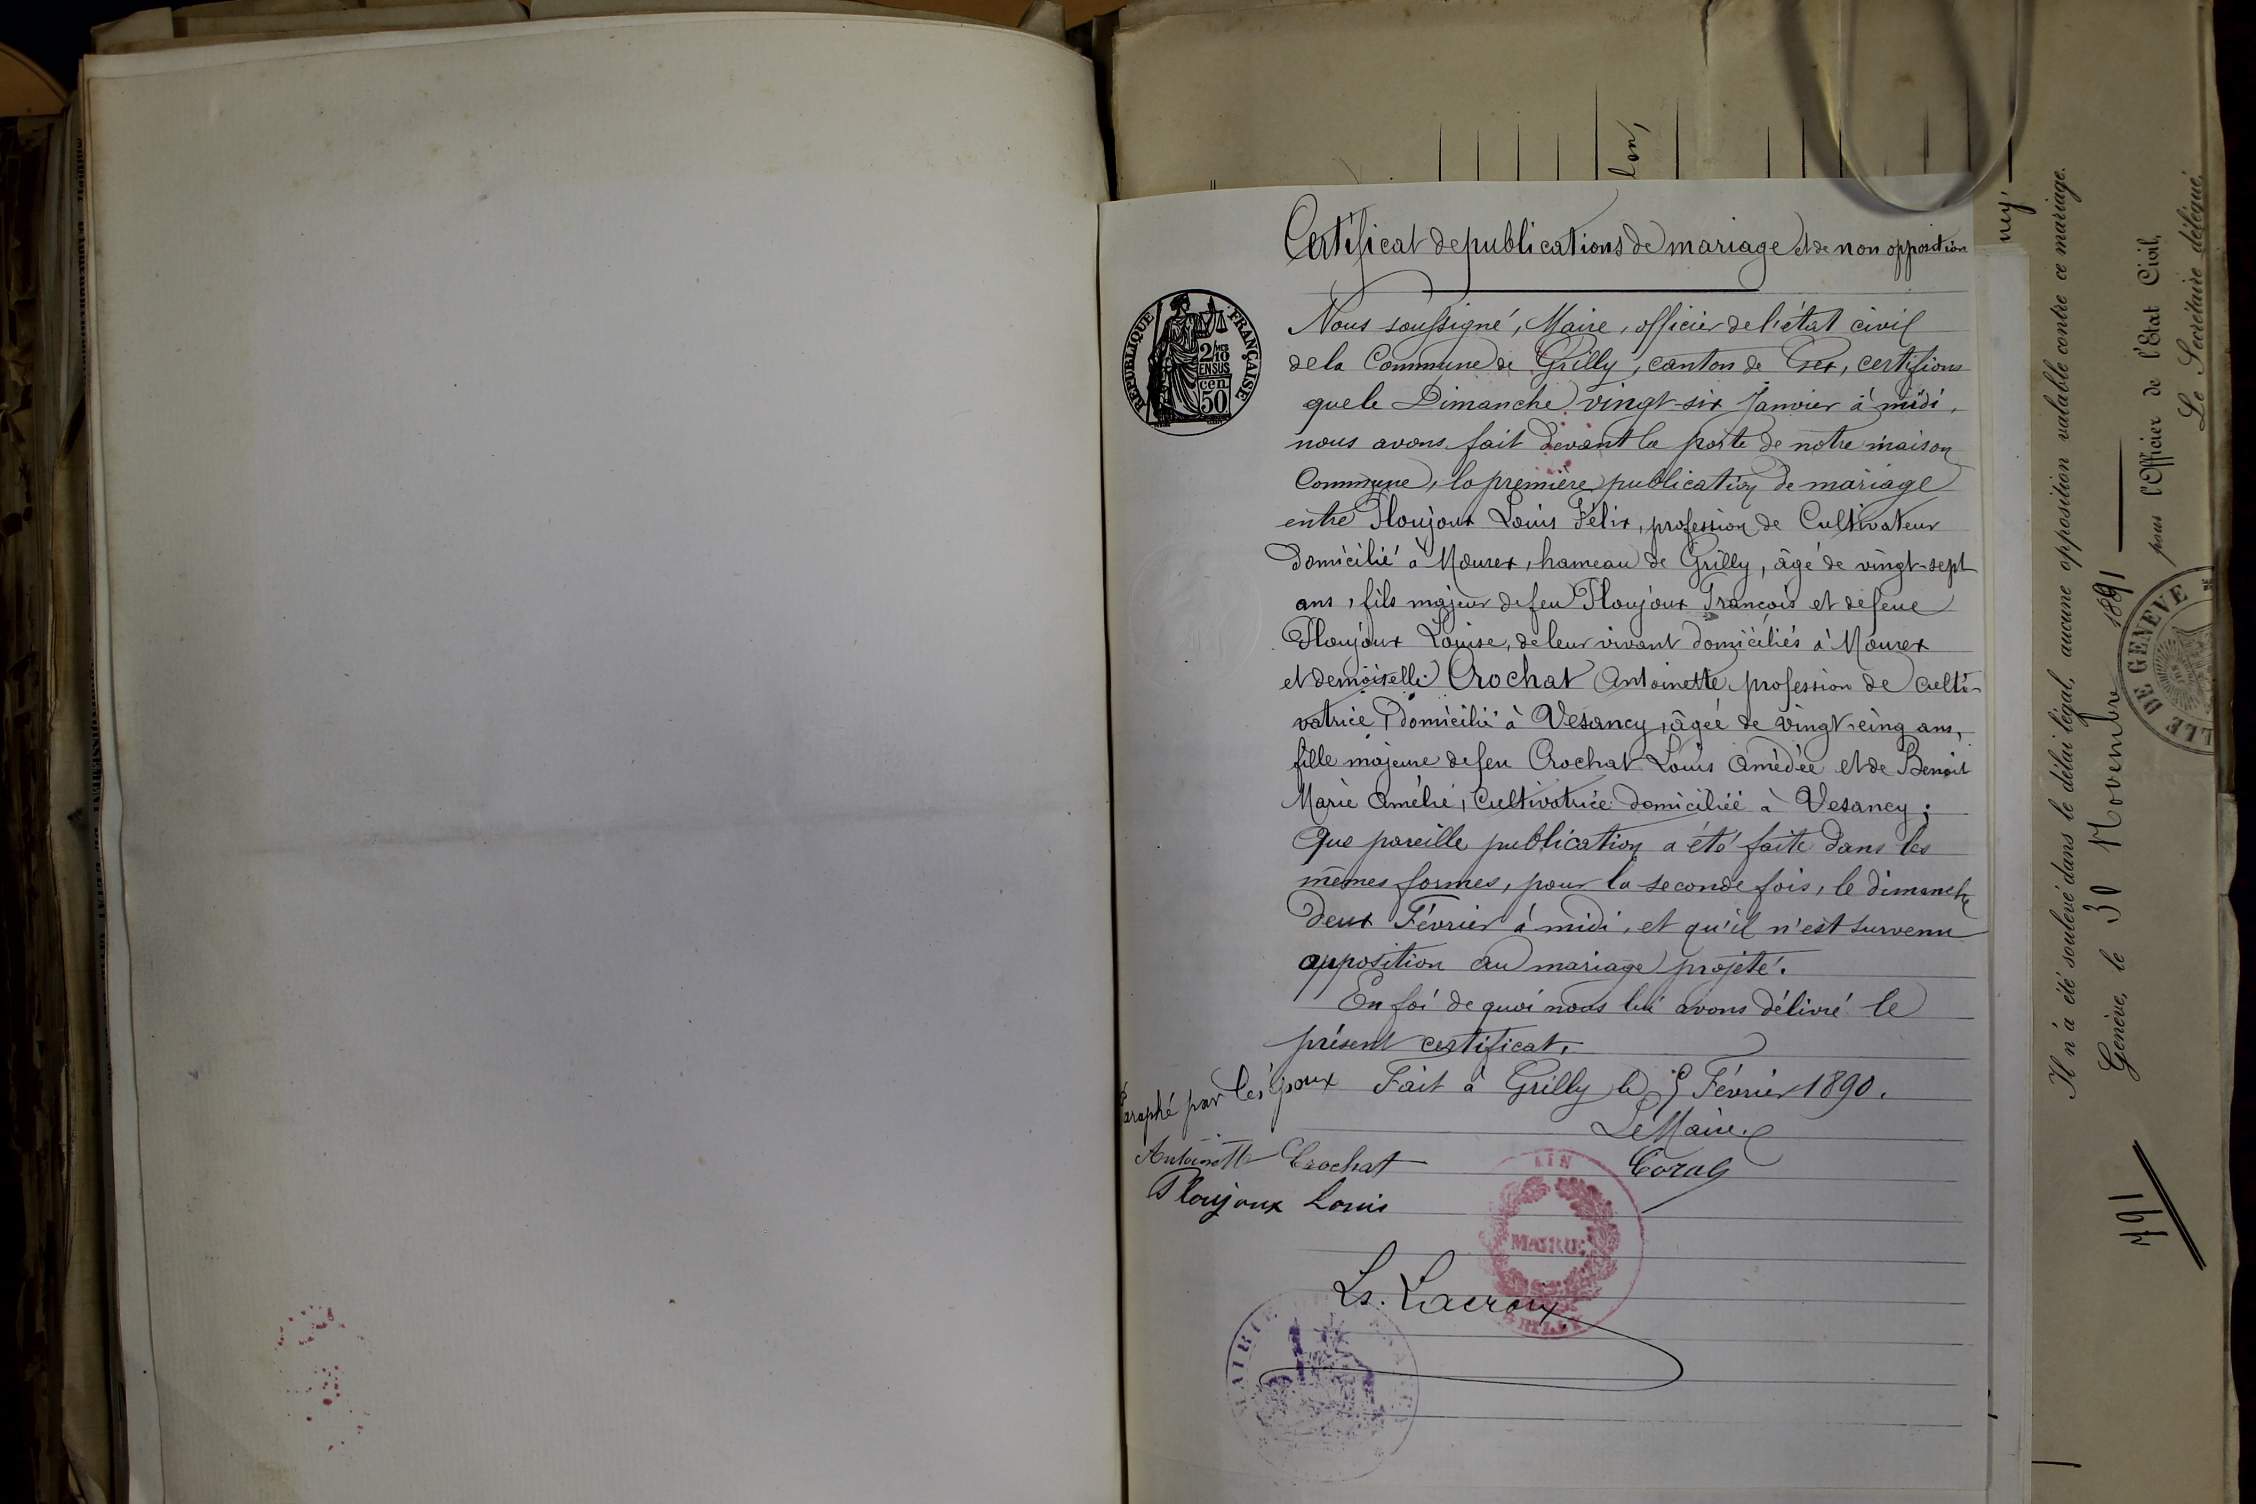 Certificat de publications de mariage et de non opposition
RÉPUBLIQUE FRANÇAISE
2/10
EN SUS
cen
50
Nous soussigné, Maire, officier de l'état civil
de la Commune de Grilly, canton de Gex, certifions
que le Dimanche vingt-six Janvier à midi,
nous avons fait devant la porte de notre maison
Commune, la première publication de mariage
entre Ploujoux Louis Félix, profession de Cultivateur
domicilié à Mourex, hameau de Grilly, âgé de vingt-sept
ans, fils majeur de feu Ploujoux François et de feue
Ploujoux Louise, de leur vivant domiciliés à Mourex
et demoiselle Crochat Antoinette profession de culti-
vatrice, domicilié à Vesancy, âgée de vingt-cinq ans,
fille majeure de feu Crochat Louis Amédée et de Benoit
Marie Amélie, Cultivatrice domiciliée à Vesancy;
Que pareille publication a été faite dans les
mêmes formes, pour la seconde fois, le dimanche
deux Février à midi, et qu'il n'est survenu
opposition au mariage projeté.
En foi de quoi nous lui avons délivré le
présent certificat.
Fait à Grilly le 5 Février 1890.
Paraphé par les époux
Le Maire
Antoinette Crochat
Ploujoux Louis
AIN
MAIRIE
GRILLY
Ls. Lacroix
MAIRIE
Il n'a été soulevé dans le délai légal, aucune opposition valable contre ce mariage.
Genève, le 30 Novembre 1891
pour l'Officier de l'État Civil,
Le Secrétaire délégué,
VILLE DE GENEVE
791